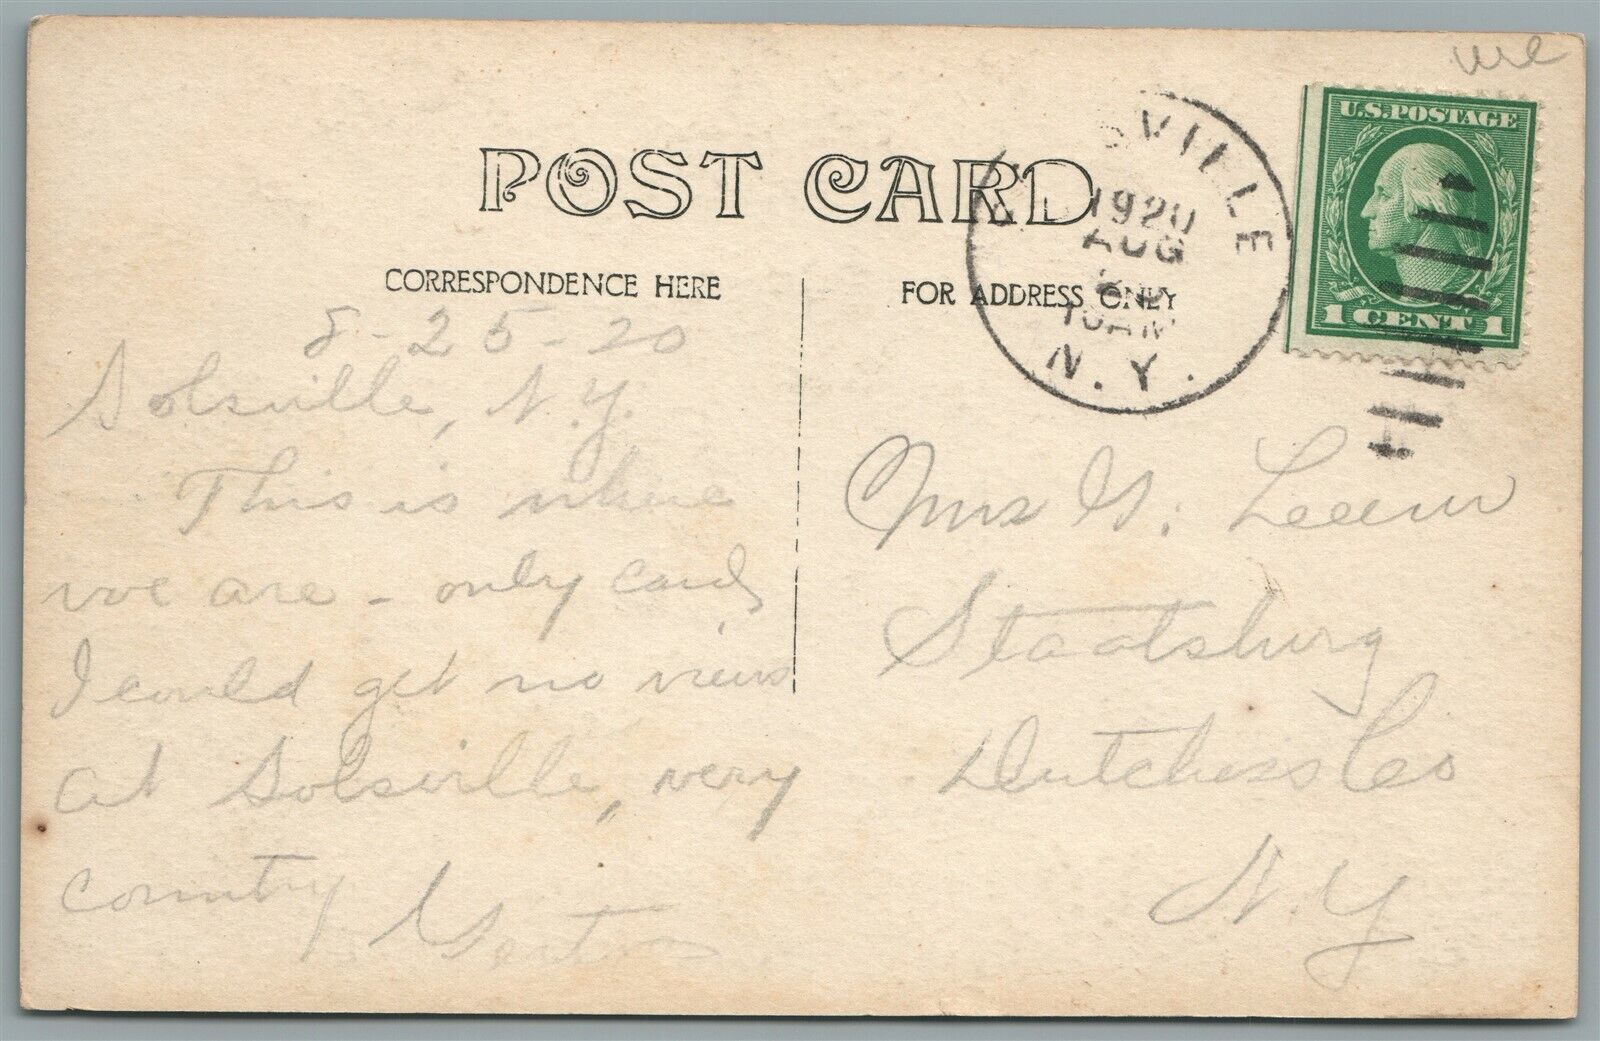 we
U.S. POSTAGE
1 CENT 1
SVILLE
1920
AUG
10 AM
N.Y.
POST CARD
CORRESPONDENCE HERE
FOR ADDRESS ONLY
8-25-20
Solsville, N.Y.
This is where
we are - only card
I could get no views
at Solsville, very
country
Mrs G.
Staatsburg
Dutchess Co
N.Y